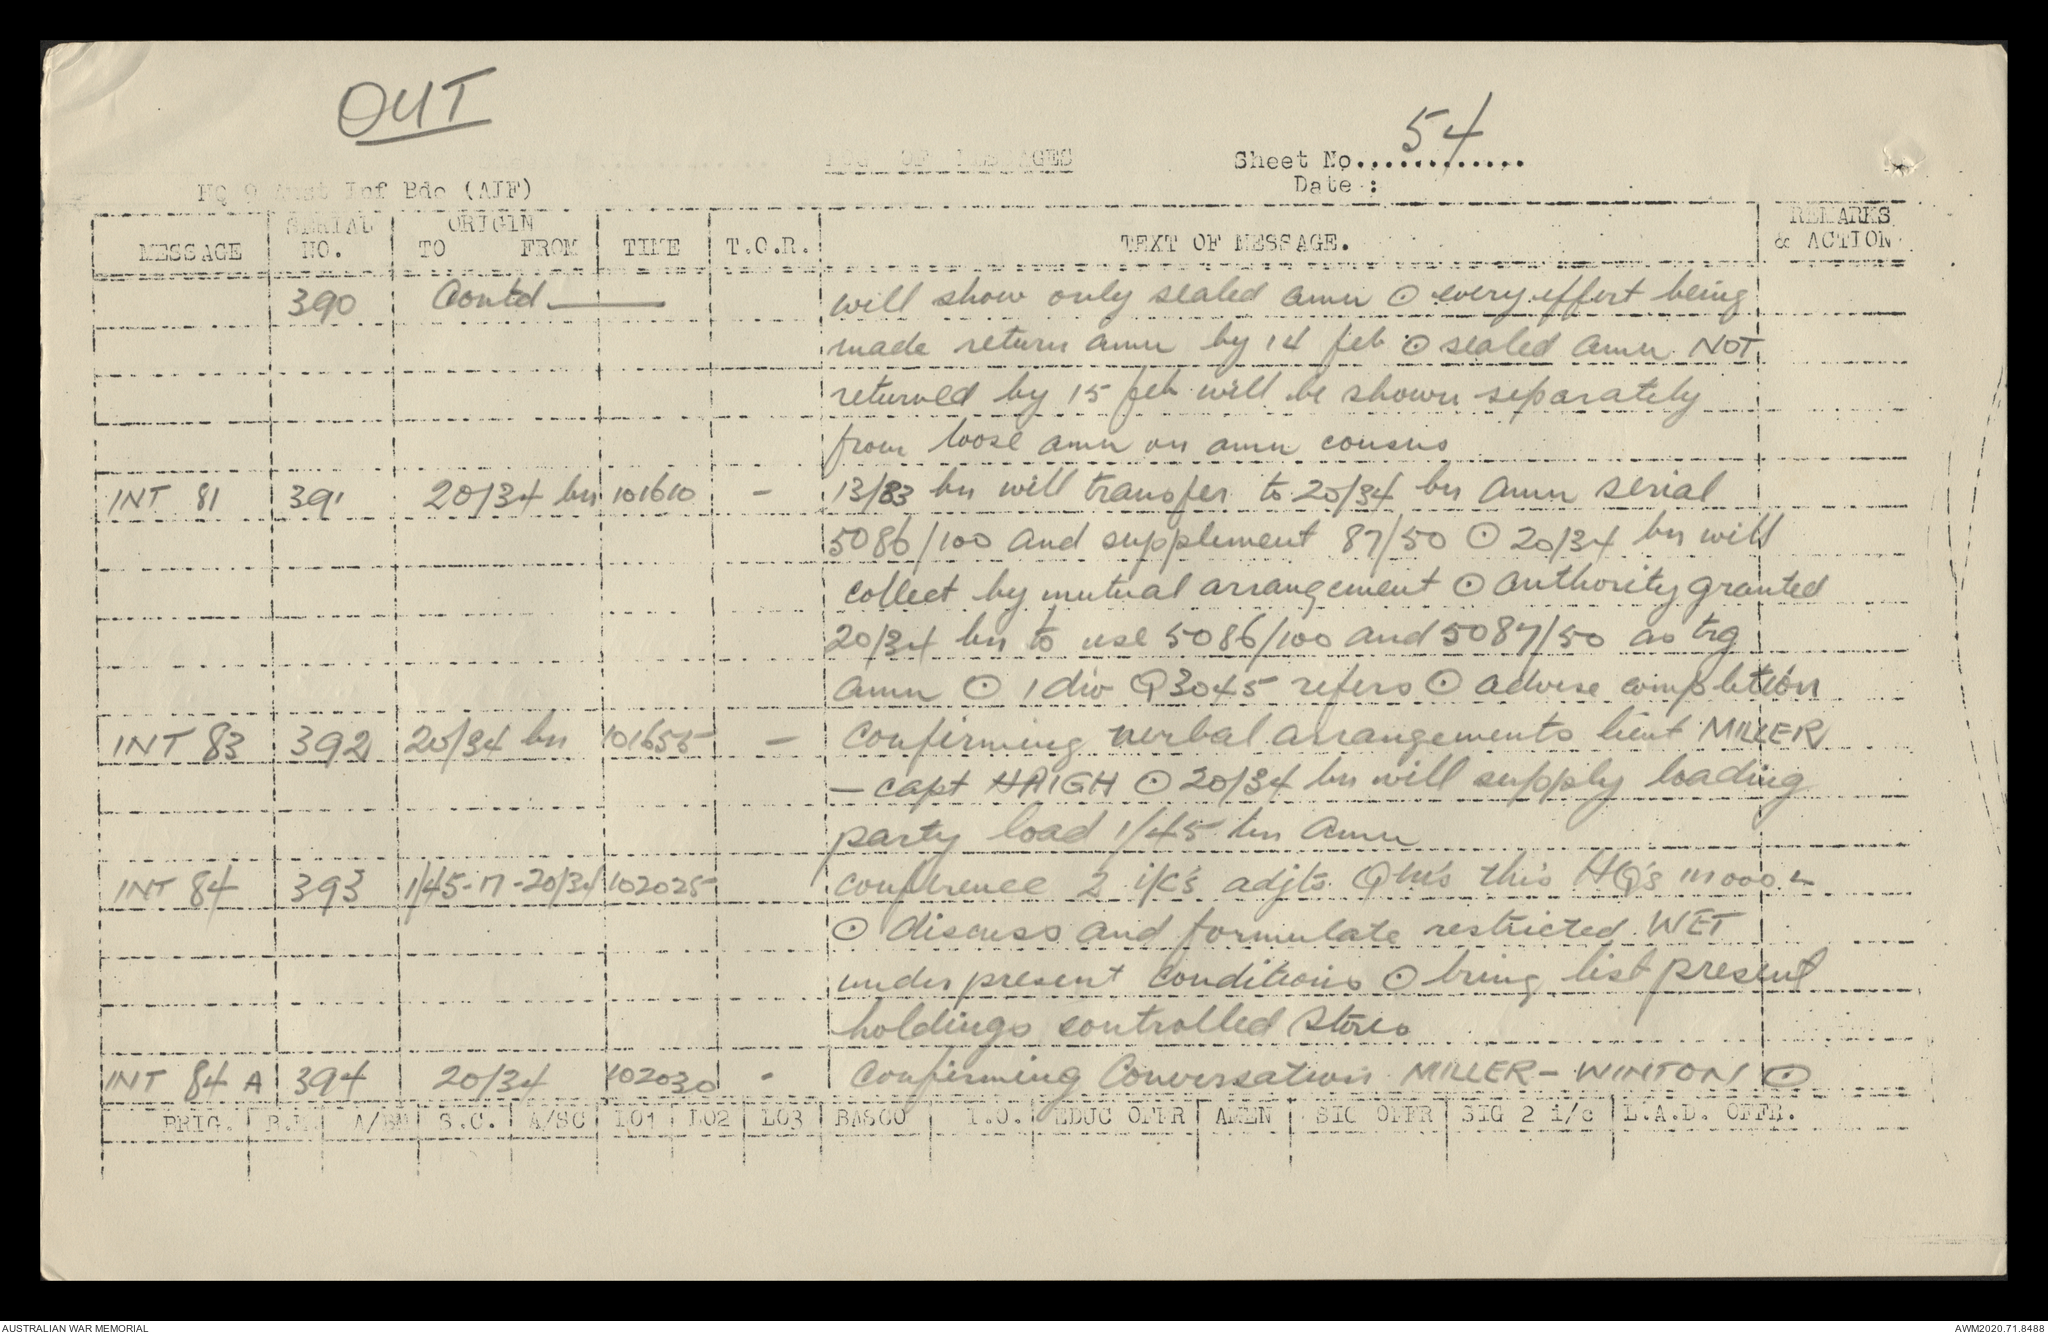 OUT
54
LOG OF MESSAGES
Sheet No............
Date :
HQ 9 Aust Inf Bde (AIF)
MESSAGE SERIAL NO. ORIGIN TO FROM TIME T.O.R. TEXT OF MESSAGE. REMARKS & ACTION
390 Contd — will show only sealed amn ⊙ every effort being
made return amn by 14 feb ⊙ sealed amn NOT
returned by 15 feb will be shown separately
from loose amn on amn census
INT 81 391 20/34 bn 101610 - 13/33 bn will transfer to 20/34 bn amn serial
5086/100 and supplement 87/50 ⊙ 20/34 bn will
collect by mutual arrangement ⊙ authority granted
20/34 bn to use 5086/100 and 5087/50 as trg
amn ⊙ 1 div Q3045 refers ⊙ advise completion
INT 83 392 20/34 bn 101655 - Confirming verbal arrangements lieut MILLER
- capt HAIGH ⊙ 20/34 bn will supply loading
party load 1/45 bn amn
INT 84 393 1/45-17-20/34 102025 conference 2 i/c's adjts QMs this HQ's 111000
⊙ discuss and formulate restricted WET
under present conditions ⊙ bring list present
holdings controlled stores
INT 84 A 394 20/34 102030 - Confirming Conversation MILLER - WINTON ⊙
BRIG. B.M. A/BM S.C. A/SC LO1 LO2 LO3 BASCO I.O. EDUC OFFR AMEN SIG OFFR SIG 2 i/c L.A.D. OFFR.
AUSTRALIAN WAR MEMORIAL
AWM2020.71.8488